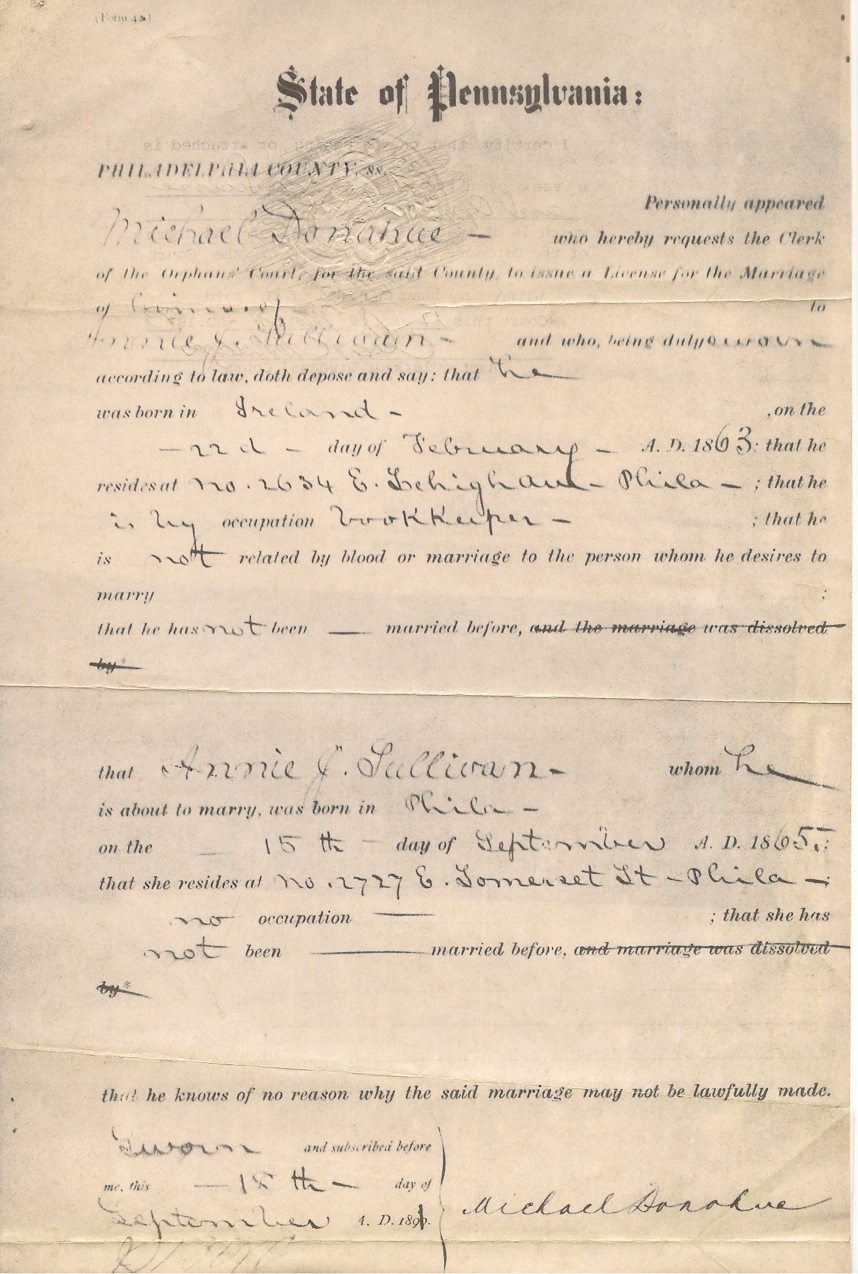 State of Pennsylvania:
PHILADELPHIA COUNTY, ss.
Personally appeared
Michael Donahue — who hereby requests the Clerk
of the Orphans' Court, for the said County, to issue a License for the Marriage
of himself to
Annie J. Sullivan - and who, being duly sworn
according to law, doth depose and say: that he
was born in Ireland - , on the
— 22d - day of February - A. D. 1863: that he
resides at No. 2634 E. Lehigh ave - Phila — ; that he
is by occupation Bookkeeper - ; that he
is not related by blood or marriage to the person whom he desires to
marry ;
that he has not been — married before, and the marriage was dissolved
by*
that Annie J. Sullivan - whom he
is about to marry, was born in Phila -
on the — 15th — day of September A. D. 1865;
that she resides at No. 2727 E. Somerset St - Phila - ;
no occupation — ; that she has
not been — married before, and marriage was dissolved
by*
that he knows of no reason why the said marriage may not be lawfully made.
Sworn and subscribed before
me, this — day of
September A. D. Michael Donahue